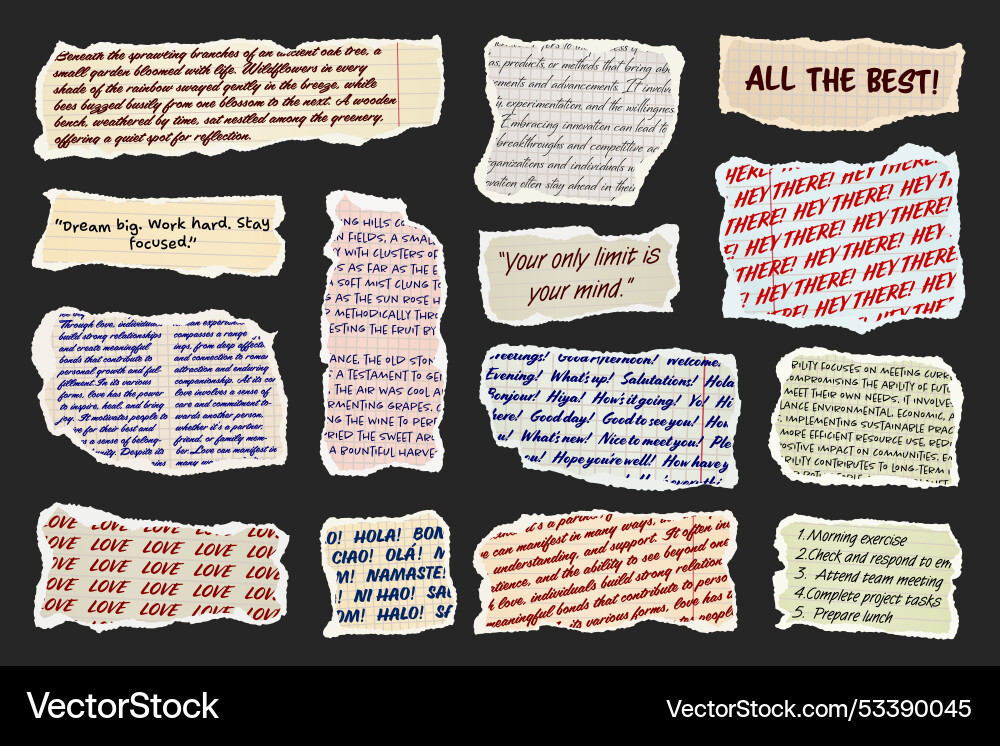 Beneath the sprawling branches of an ancient oak tree, a
small garden bloomed with life. Wildflowers in every
shade of the rainbow swayed gently in the breeze, while
bees buzzed busily from one blossom to the next. A wooden
bench, weathered by time, sat nestled among the greenery,
offering a quiet spot for reflection.
as, products, or methods that bring abo
ements and advancements. It involv
y, experimentation, and the willingnes
Embracing innovation can lead to
breakthroughs and competitive ad
ganizations and individuals w
ovation often stay ahead in their
ALL THE BEST!
"Dream big. Work hard. Stay
focused."
ING HILLS
N FIELDS, A SMAL
Y WITH CLUSTERS OF
S AS FAR AS THE E
A SOFT MIST CLUNG TO
G AS THE SUN ROSE H
METHODICALLY THRO
ESTING THE FRUIT BY
ANCE, THE OLD STON
A TESTAMENT TO GE
THE AIR WAS COOL A
RMENTING GRAPES,
NG THE WINE TO PER
RIED THE SWEET ARO
A BOUNTIFUL HARVE
"your only limit is
your mind."
HEY THERE! HEY THERE!
HEY THERE! HEY T
THERE! HEY THERE! HEY
HEY THERE! HEY THERE!
THERE! HEY THERE! HEY
! HEY THERE! HEY THERE
THERE! HEY THERE! HEY
HEY THE
Through love, individua
build strong relationships
and create meaningful
bonds that contribute to
personal growth and ful-
fillment. In its various
forms, love has the power
to inspire, heal, and bring
joy. It motivates people to
ve for their best and
s a sense of belong-
unity. Despite its
an experien
compasses a range
ings, from deep affecti
and connection to roman
attraction and enduring
companionship. At its co
love involves a sense of
care and commitment to-
wards another person,
whether it's a partner,
friend, or family mem-
ber. Love can manifest in
many
reetings! Good afternoon! Welcome.
Evening! What's up! Salutations! Hola
Bonjour! Hiya! How's it going! Yo! Hi
here! Good day! Good to see you! How
u! What's new! Nice to meet you! Ple
ou! Hope you're well! How have y
BILITY FOCUSES ON MEETING CURR
OMPROMISING THE ABILITY OF FUTU
MEET THEIR OWN NEEDS. IT INVOLVE
LANCE ENVIRONMENTAL, ECONOMIC, A
IMPLEMENTING SUSTAINABLE PRAC
MORE EFFICIENT RESOURCE USE, RED
OSITIVE IMPACT ON COMMUNITIES, E
BILITY CONTRIBUTES TO LONG-TERM
LOVE LOVE LOVE LOVE LOVE
LOVE LOVE LOVE LOVE LOVE
LOVE LOVE LOVE LOVE LOVE
LOVE LOVE LOVE LOVE LOVE
LOVE LOVE LOVE LOVE LOVE
O! HOLA! BON
CIAO! OLÁ! N
M! NAMASTE!
! NI HAO! SA
OM! HALO! SA
it's a partn
e can manifest in many ways, in
understanding, and support. It often inv
atience, and the ability to see beyond one
h love, individuals build strong relation
meaningful bonds that contribute to perso
its various forms, love has
people
1. Morning exercise
2. Check and respond to em
3. Attend team meeting
4. Complete project tasks
5. Prepare lunch
VectorStock
VectorStock.com/53390045